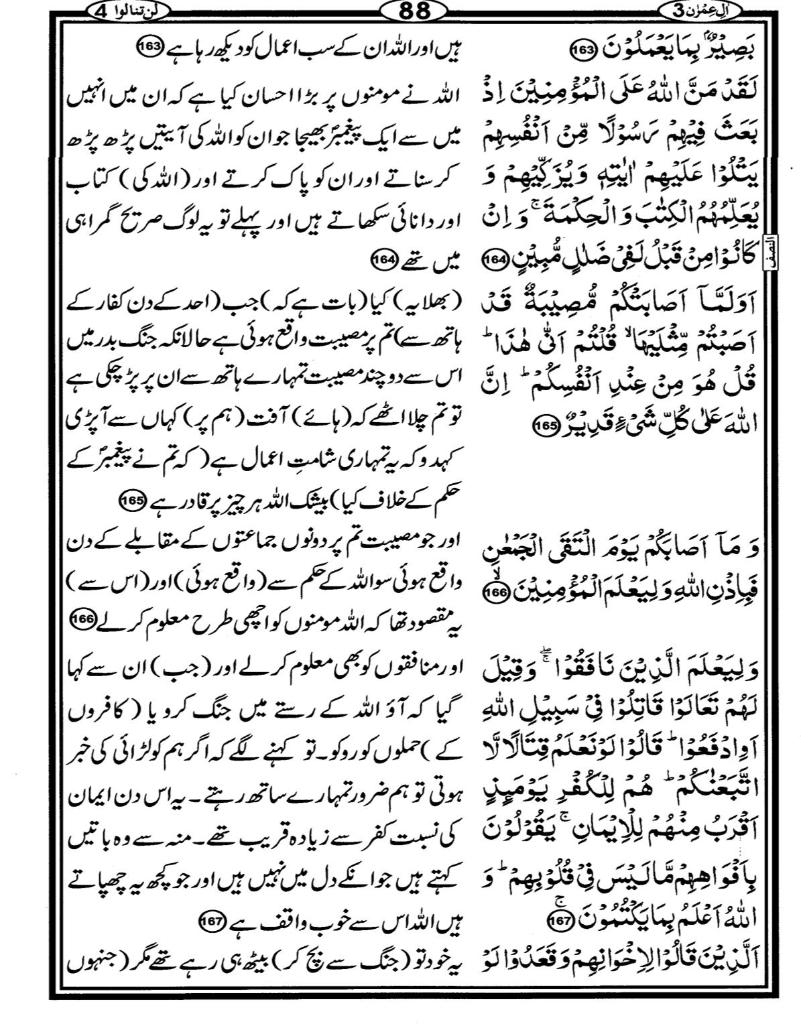 اٰلِ عِمْرٰن 3
88
لن تنالوا 4
بَصِیْرٌۢ بِمَا یَعْمَلُوْنَ ﴿163﴾
لَقَدْ مَنَّ اللّٰهُ عَلَی الْمُؤْمِنِیْنَ اِذْ
بَعَثَ فِیْهِمْ رَسُوْلًا مِّنْ اَنْفُسِهِمْ
یَتْلُوْا عَلَیْهِمْ اٰیٰتِهٖ وَیُزَكِّیْهِمْ وَ
یُعَلِّمُهُمُ الْكِتٰبَ وَ الْحِكْمَةَ ۚ وَ اِنْ
كَانُوْا مِنْ قَبْلُ لَفِیْ ضَلٰلٍ مُّبِیْنٍ ﴿164﴾
النصف
اَوَلَمَّاۤ اَصَابَتْكُمْ مُّصِیْبَةٌ قَدْ
اَصَبْتُمْ مِّثْلَیْهَا ۙ قُلْتُمْ اَنّٰی هٰذَا ؕ
قُلْ هُوَ مِنْ عِنْدِ اَنْفُسِكُمْ ؕ اِنَّ
اللّٰهَ عَلٰی كُلِّ شَیْءٍ قَدِیْرٌ ﴿165﴾
وَ مَاۤ اَصَابَكُمْ یَوْمَ الْتَقَی الْجَمْعٰنِ
فَبِاِذْنِ اللّٰهِ وَ لِیَعْلَمَ الْمُؤْمِنِیْنَ ۙ﴿166﴾
وَ لِیَعْلَمَ الَّذِیْنَ نَافَقُوْا ۖۚ وَ قِیْلَ
لَهُمْ تَعَالَوْا قَاتِلُوْا فِیْ سَبِیْلِ اللّٰهِ
اَوِ ادْفَعُوْا ؕ قَالُوْا لَوْ نَعْلَمُ قِتَالًا لَّا
اتَّبَعْنٰكُمْ ؕ هُمْ لِلْكُفْرِ یَوْمَىِٕذٍ
اَقْرَبُ مِنْهُمْ لِلْاِیْمَانِ ۚ یَقُوْلُوْنَ
بِاَفْوَاهِهِمْ مَّا لَیْسَ فِیْ قُلُوْبِهِمْ ؕ وَ
اللّٰهُ اَعْلَمُ بِمَا یَكْتُمُوْنَ ۚ﴿167﴾
اَلَّذِیْنَ قَالُوْا لِاِخْوَانِهِمْ وَ قَعَدُوْا لَوْ
ہیں اور اللہ ان کے سب اعمال کو دیکھ رہا ہے ﴿163﴾
اللہ نے مومنوں پر بڑا احسان کیا ہے کہ ان میں انہیں
میں سے ایک پیغمبرؐ بھیجا جو ان کو اللہ کی آیتیں پڑھ پڑھ
کر سناتے اور ان کو پاک کرتے اور (اللہ کی) کتاب
اور دانائی سکھاتے ہیں اور پہلے تو یہ لوگ صریح گمراہی
میں تھے ﴿164﴾
(بھلا یہ) کیا (بات ہے کہ) جب (احد کے دن کفار کے
ہاتھ سے) تم پر مصیبت واقع ہوئی ہے حالانکہ جنگ بدر میں
اس سے دو چند مصیبت تمہارے ہاتھ سے ان پر پڑ چکی ہے
تو تم چلا اٹھے کہ (ہائے) آفت (ہم پر) کہاں سے آ پڑی
کہدو کہ یہ تمہاری شامتِ اعمال ہے (کہ تم نے پیغمبرؐ کے
حکم کے خلاف کیا) بیشک اللہ ہر چیز پر قادر ہے ﴿165﴾
اور جو مصیبت تم پر دونوں جماعتوں کے مقابلے کے دن
واقع ہوئی سو اللہ کے حکم سے (واقع ہوئی) اور (اس سے)
یہ مقصود تھا کہ اللہ مومنوں کو اچھی طرح معلوم کر لے ﴿166﴾
اور منافقوں کو بھی معلوم کر لے اور (جب) ان سے کہا
گیا کہ آؤ اللہ کے رستے میں جنگ کرو یا (کافروں
کے) حملوں کو روکو۔ تو کہنے لگے کہ اگر ہم کو لڑائی کی خبر
ہوتی تو ہم ضرور تمہارے ساتھ رہتے۔ یہ اس دن ایمان
کی نسبت کفر سے زیادہ قریب تھے۔ منہ سے وہ باتیں
کہتے ہیں جو انکے دل میں نہیں ہیں اور جو کچھ یہ چھپاتے
ہیں اللہ اس سے خوب واقف ہے ﴿167﴾
یہ خود تو (جنگ سے بچ کر) بیٹھ ہی رہے تھے مگر (جنہوں